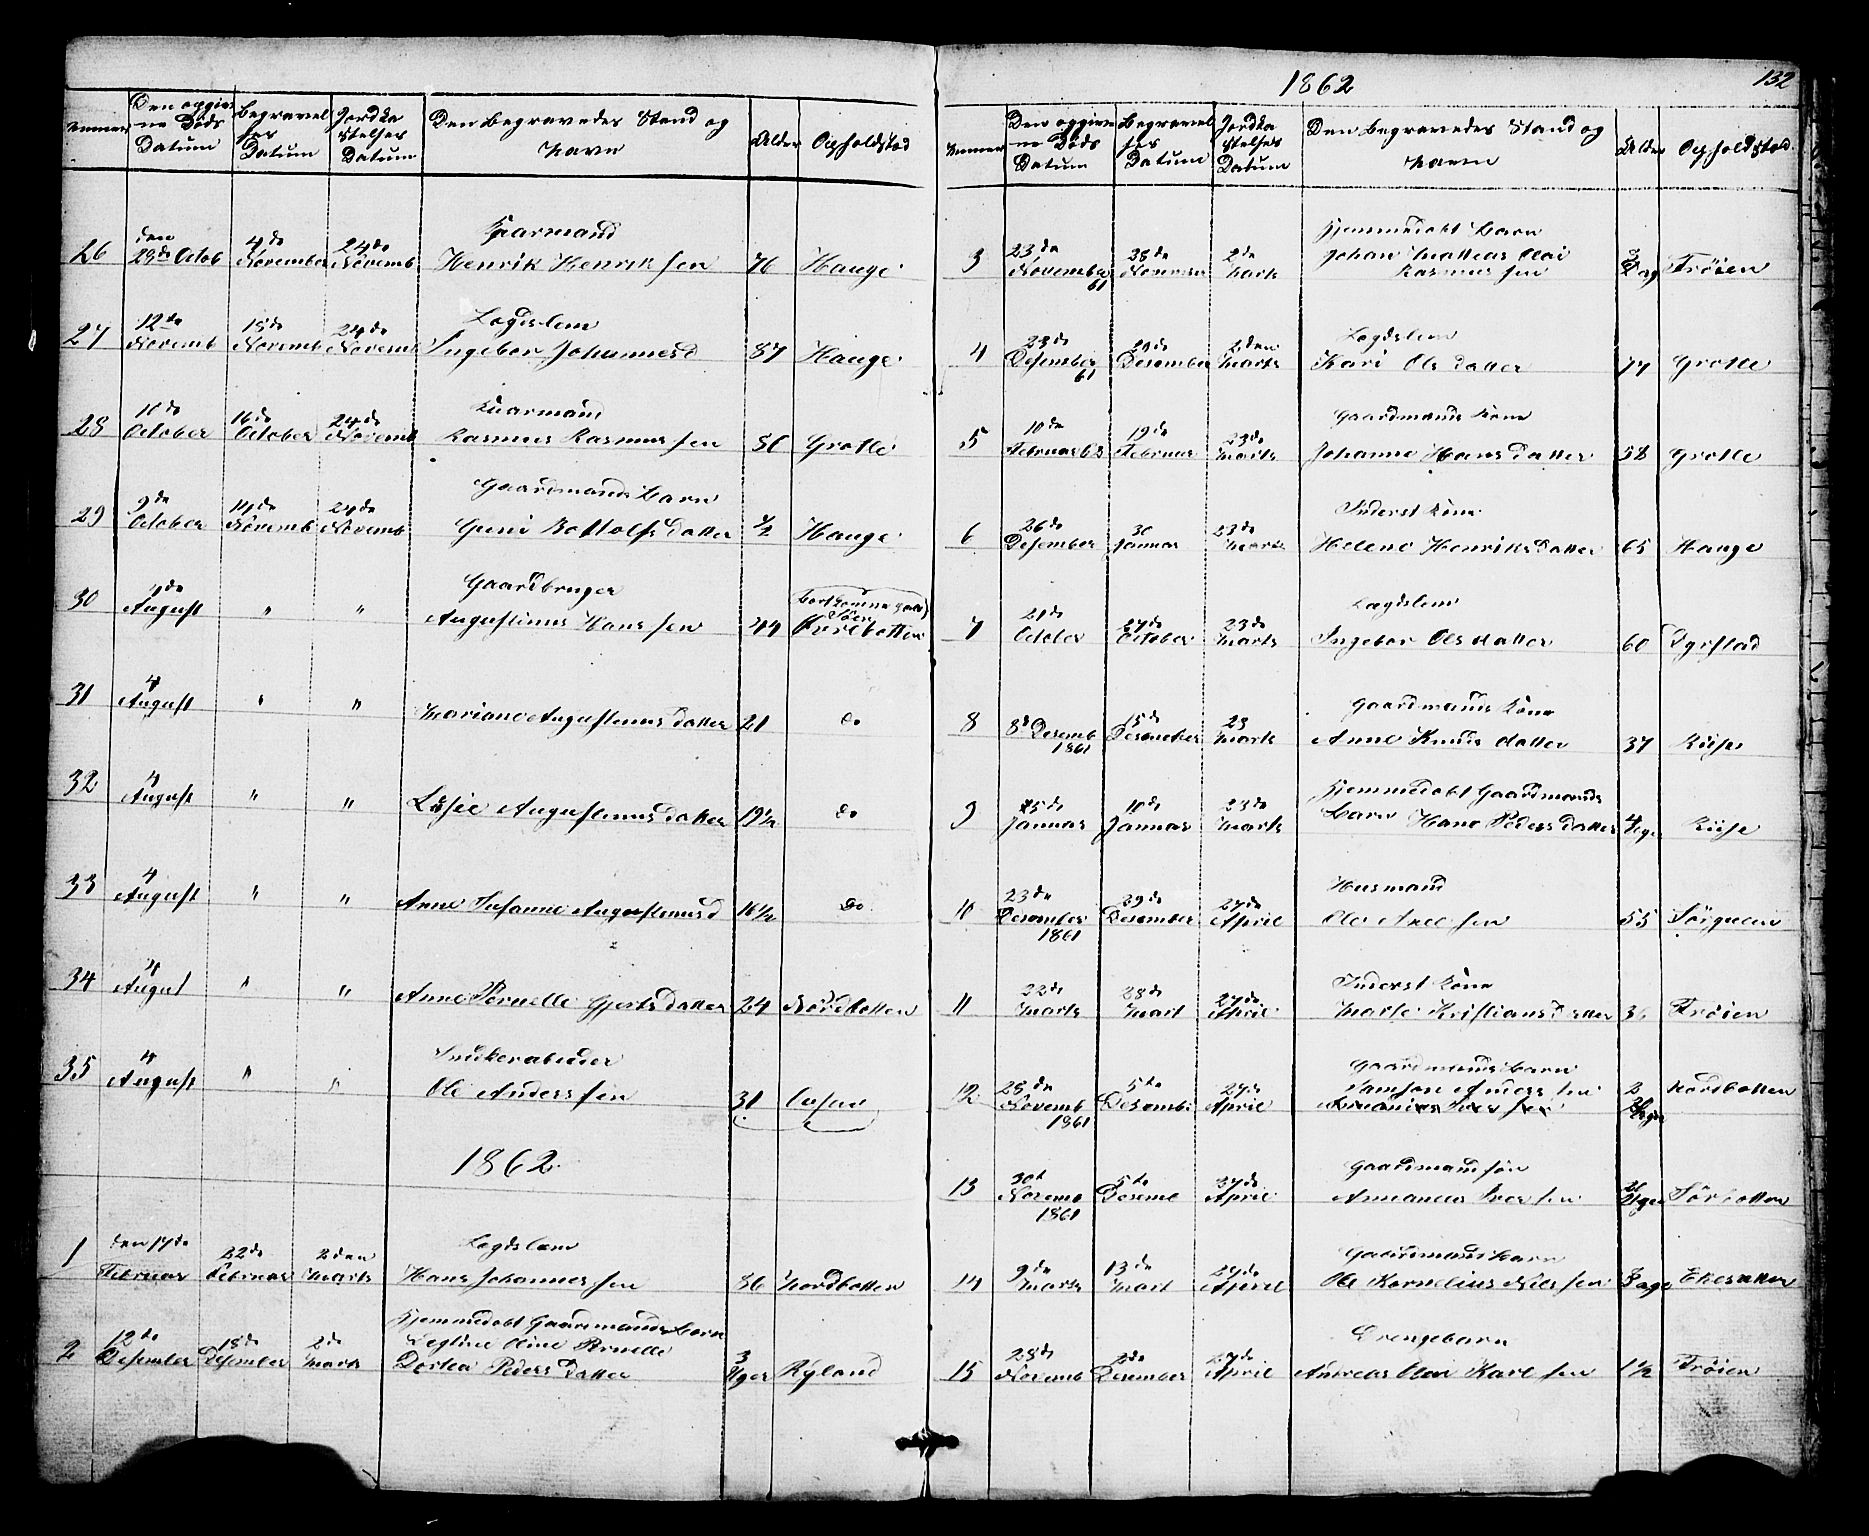 Nummer Den opgivne Døds Datum Begravelses Datum Jordkastelses Datum Den Begravedes Stand og Navn Alder Opholdstød
26 den 28de Octob 4de November 24de Novemb Kaarmand
Henrik Henriksen 76 Hauge
27 12te Novemb 18de Novemb 24de Novemb Lægdslem
Ingebor Johannesd 87 Hauge
28 10de October 16de October 24de Novemb Kaarmand
Rasmus Rasmussen Grotle
29 9de October 14de Novemb 24de Novemb Gaardmands Barn
Guni Bottolfsdatter 1/2 Hauge
30 4de August " " Gaardbruger
Augustinus Hanssen 44
31 4 August " " Mariane Augustinusdatter 21 do
32 4 August " " Lusie Augustinusdatter 19 1/2 do
33 4 August " " Anne Susanne Augustinusd 16 1/2 do
34 4 August " " Anne Pernelle Gjertsdatter 24 Nordbotten
35 4 August " "
Ole Anderssen 31
1862
1 den 17de Februar 22de Februar 2den Marts Lægdslem
Hans Johannessen 86 Nordbotten
2 12te Desember 18de Desember 2de Marts Hjemmedøbt Gaardmands Barn
Oline Pernelle
Dortea Pedersdatter 3 Uger Ryland
1862 132
Nummer Den opgivne Døds Datum Begravelses Datum Jordkastelses Datum Den Begravedes Stand og Navn Alder Opholdstød
3 23de November 61 28de Novem 2de Marts Hjemmedøbt Barn
Johan Mattias Olai
Rasmussen 3 Dag Frøien
4 23de Desember 61 29de Desember 2den Marts Lægdslem
Kari Olsdatter 77 Grotle
5 10de Februar 63 19de Februar 23de Marts Gaardmands Kone
Johanne Hansdatter 58 Grotle
6 26de Desember 30 Januar 23de Marts Inderst Kone
Helene Henriksdatter 65 Hauge
7 21de October 27de October 23de Marts Lægdslem
Ingebor Olsdatter 60
8 8d Desemb 1861 15de Desember 23 Marts Gaardmands Kone
Anne Knudsdatter 37 Riise
9 5de Januar 10de Januar 23de Marts Hjemmedøbt Gaardmands
Barn Hane Pedersdatter 4 Uger Riise
10 23de Desember 1861 29de Desember 27de April Husmand
Ole 55
11 22de Marts 28de Mart 27de April Inderst Kone
Marte Kristiansdatter 36 Frøien
12 28de Novemb 1861 5te Desemb 27de April Gaardmands Barn
Samson Anderssen 2 Uger Nordbotten
13 30t Novemb 1861 5te Desemb 27de April Gaardmandssøn
Armandus Iversen Uger Sørbotten
14 9de Marts 13de Mart 27de April Gaardmands Barn
Ole Kornelius Nilssen 3 Dage
15 28de Novemb 2de Desember 27de April Drengebarn
Andreas Olai Karlsen 1 1/2 Frøien